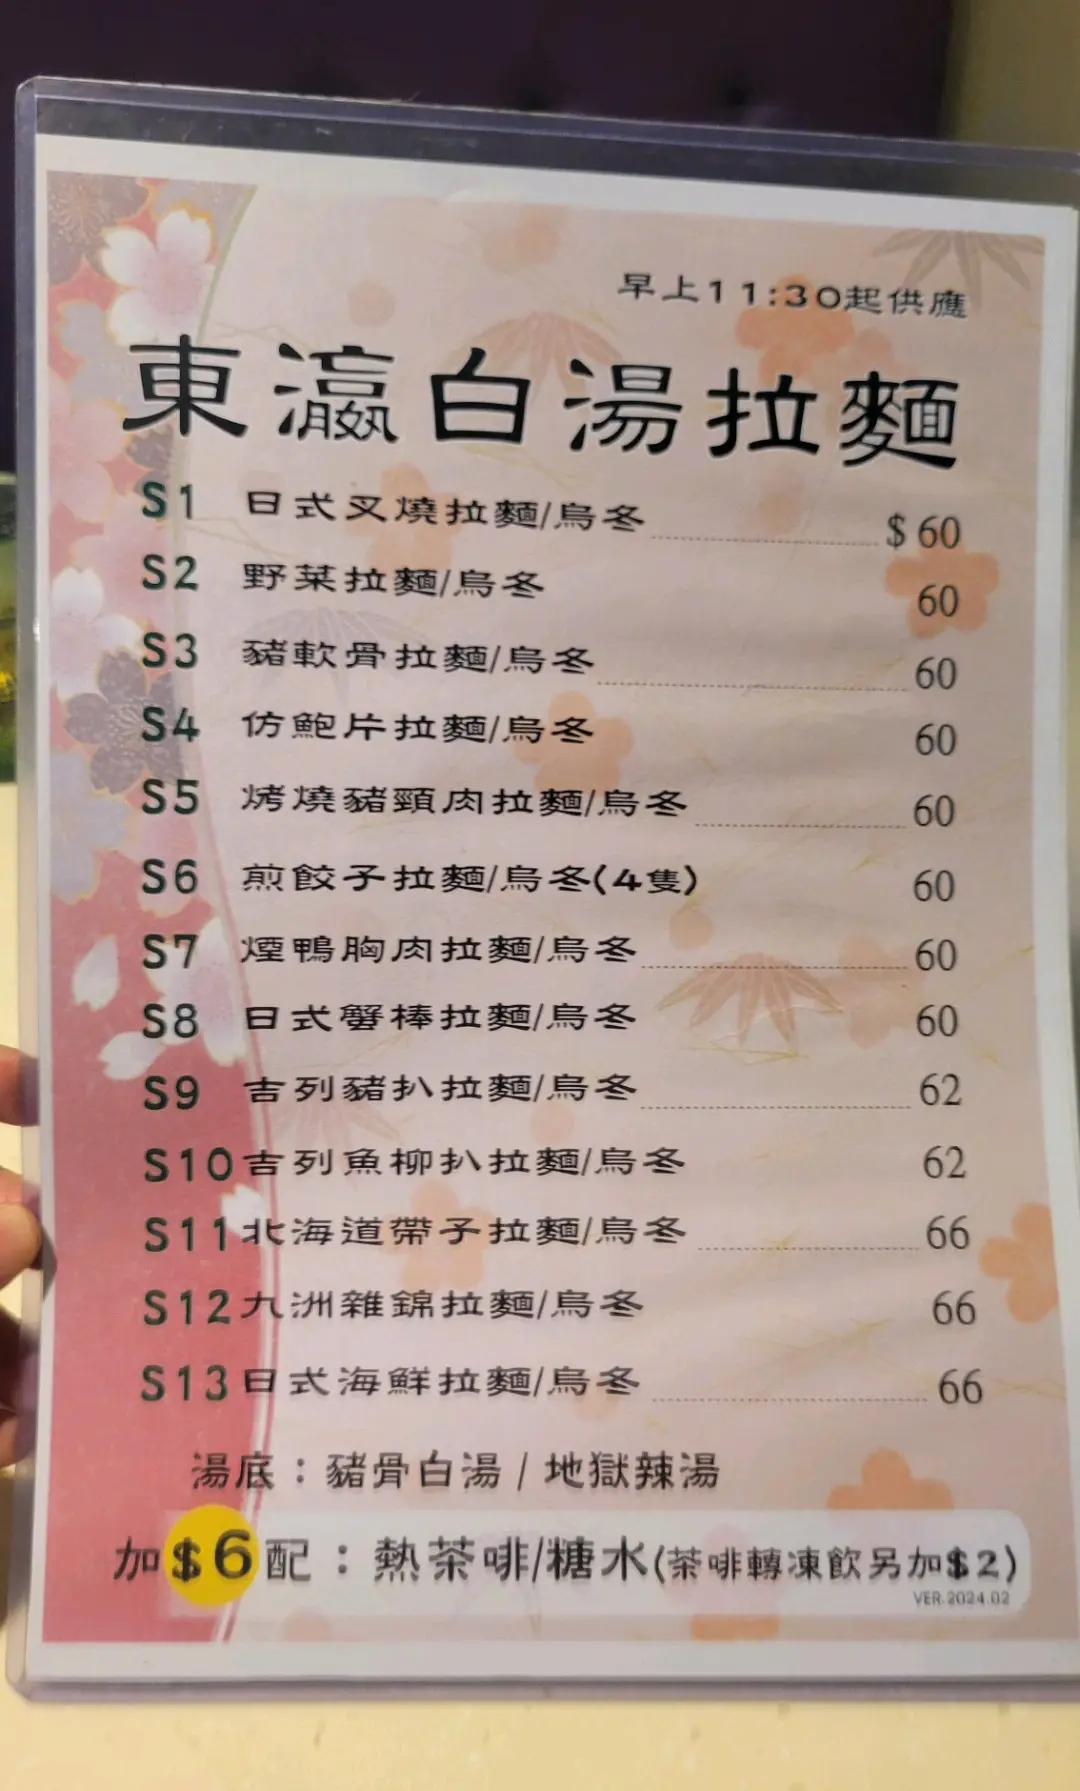 早上11:30起供應
東瀛白湯拉麵
S1 日式叉燒拉麵/烏冬 $60
S2 野菜拉麵/烏冬 60
S3 豬軟骨拉麵/烏冬 60
S4 仿鮑片拉麵/烏冬 60
S5 烤燒豬頸肉拉麵/烏冬 60
S6 煎餃子拉麵/烏冬(4隻) 60
S7 煙鴨胸肉拉麵/烏冬 60
S8 日式蟹棒拉麵/烏冬 60
S9 吉列豬扒拉麵/烏冬 62
S10 吉列魚柳扒拉麵/烏冬 62
S11 北海道帶子拉麵/烏冬 66
S12 九洲雜錦拉麵/烏冬 66
S13 日式海鮮拉麵/烏冬 66
湯底：豬骨白湯 / 地獄辣湯
加$6配：熱茶啡/糖水(茶啡轉凍飲另加$2)
VER.2024.02